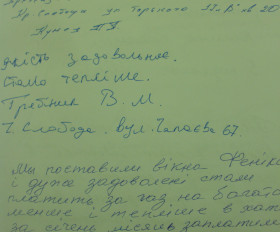 Слобода
якість задовольняє.
Стало тепліше.
Гребник В. М.
Слобода, вул. Чапаєва 67.
Мы поставили вікна Фенікс
і дуже задоволені стали
платить за газ на багато
менше і тепліше в хаті
за січень місяць заплатили